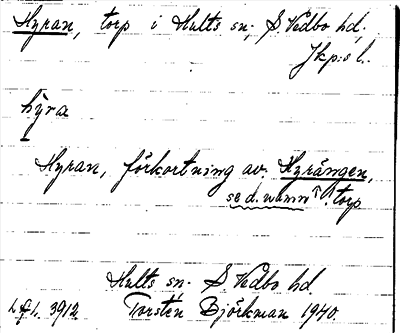 Hyran, torp i Hults sn, S. Vedbo hd,
Jkp:s l.
hȳra
Hyran, förkortning av Hyrängen,
se d. namn, torp
Hults sn. S. Vedbo hd
L.f.L. 3912. Torsten Björkman 1940.